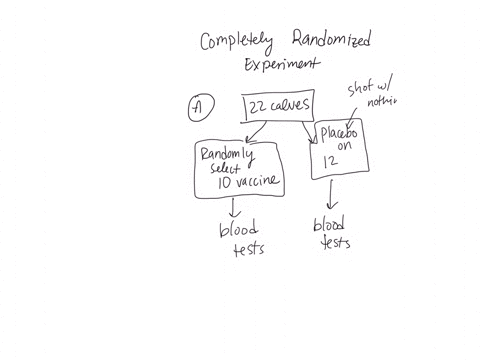 Completely Randomized
Experiment
shot w/
A
22 calves
Randomly
select
10 vaccine
Placebo
on
12
blood
tests
blood
tests